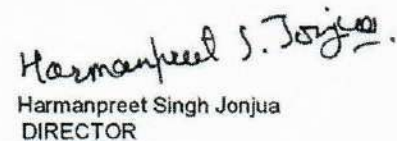 Harmanpreet S. Jonjua.
Harmanpreet Singh Jonjua
DIRECTOR